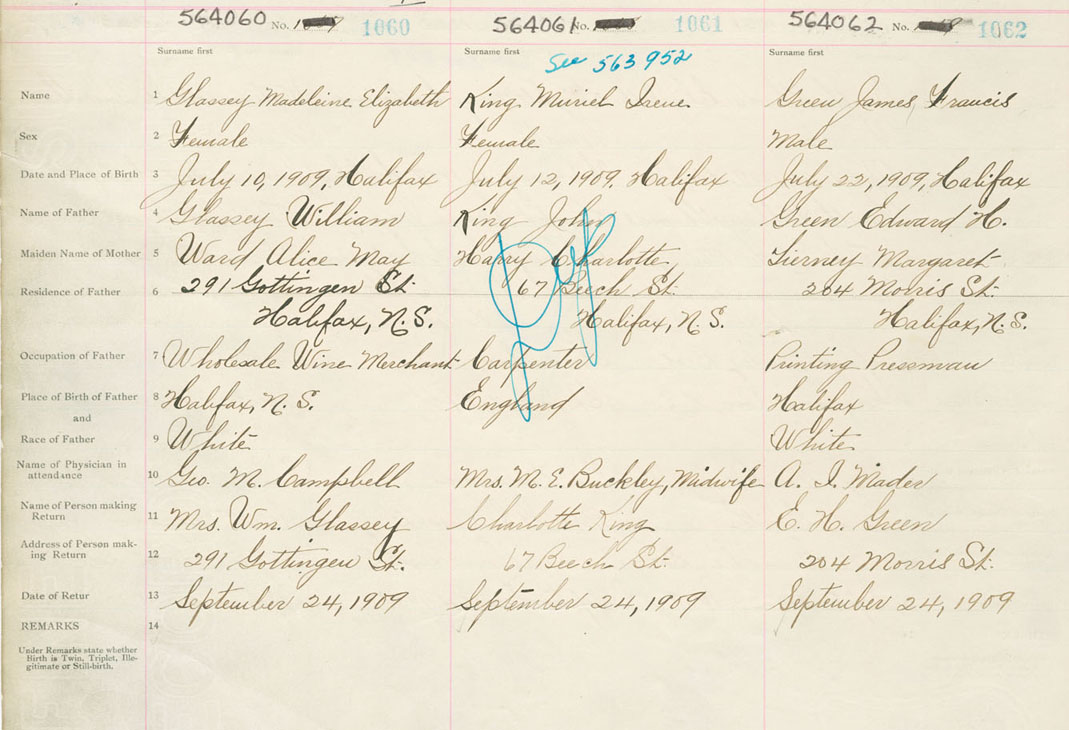 564060 No. 1060 564061 No. 1061 564062 No. 1062
Surname first Surname first Surname first
See 563952
Name 1 Glassey Madeleine Elizabeth King Muriel Irene Green James Francis
Sex 2 Female Female Male
Date and Place of Birth 3 July 10, 1909, Halifax July 12, 1909, Halifax July 22, 1909, Halifax
Name of Father 4 Glassey William King John Green Edward H.
Maiden Name of Mother 5 Ward Alice May Harry Charlotte Tierney Margaret
Residence of Father 6 291 Gottingen St. 67 Beech St. 204 Morris St.
Halifax, N.S. Halifax, N.S. Halifax, N.S.
Occupation of Father 7 Wholesale Wine Merchant Carpenter Printing Pressman
Place of Birth of Father 8 Halifax, N.S. England Halifax
and
Race of Father 9 White White
Name of Physician in
attendance 10 Geo. M. Campbell Mrs. M. E. Buckley, Midwife A. I. Mader
Name of Person making
Return 11 Mrs. Wm. Glassey Charlotte King E. H. Green
Address of Person mak-
ing Return 12 291 Gottingen St. 67 Beech St. 204 Morris St.
Date of Retur 13 September 24, 1909 September 24, 1909 September 24, 1909
REMARKS 14
Under Remarks state whether
Birth is Twin, Triplet, Ille-
gitimate or Still-birth.